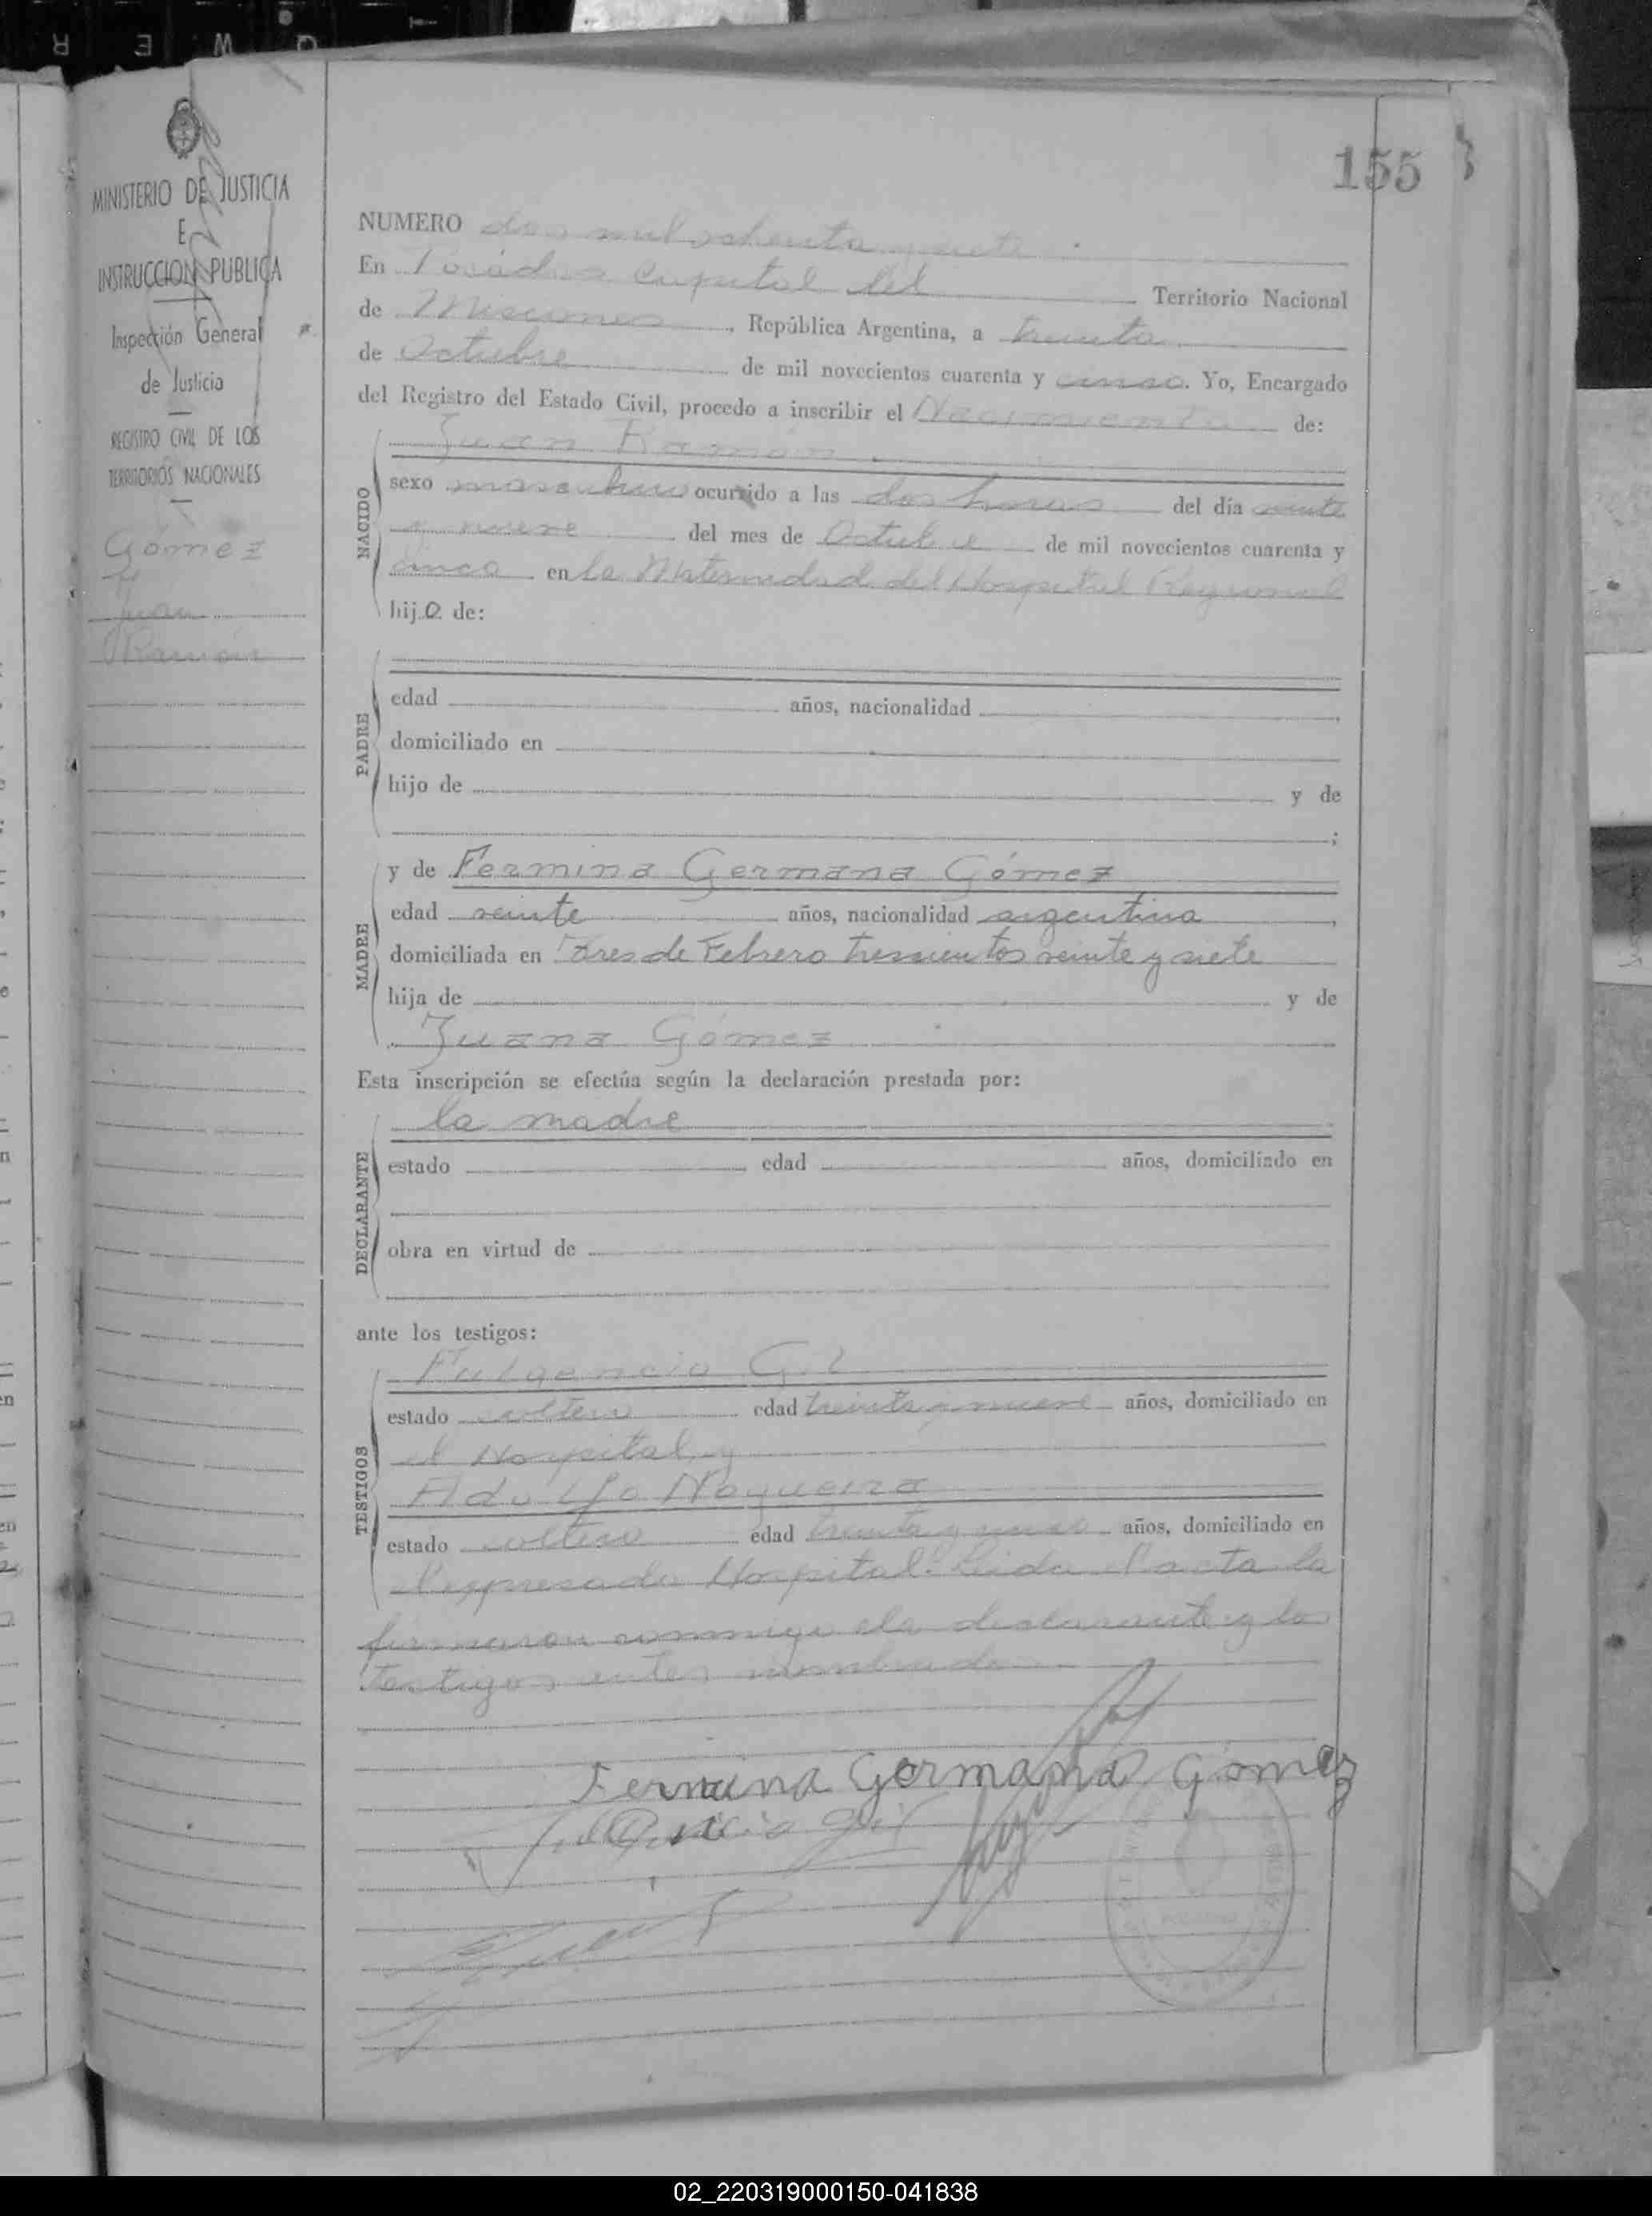 R E W Q
155
MINISTERIO DE JUSTICIA
E
INSTRUCCION PUBLICA
Inspección General
de Justicia
REGISTRO CIVIL DE LOS
TERRITORIOS NACIONALES
Gómez
Juan
Ramón
NUMERO dos mil ochenta y siete
En Posadas Capital del Territorio Nacional
de Misiones, República Argentina, a treinta
de Octubre de mil novecientos cuarenta y cinco. Yo, Encargado
del Registro del Estado Civil, procedo a inscribir el Nacimiento de:
Juan Ramón
NACIDO
sexo masculino ocurrido a las dos horas del día veinte
y nueve del mes de Octubre de mil novecientos cuarenta y
cinco en la Maternidad del Hospital Regional
hijo de:
PADRE
edad años, nacionalidad
domiciliado en
hijo de y de
;
MADRE
y de Fermina Germana Gómez
edad veinte años, nacionalidad argentina,
domiciliada en Tres de Febrero trescientos veinte y siete
hija de y de
Juana Gómez
Esta inscripción se efectúa según la declaración prestada por:
la madre
DECLARANTE
estado edad años, domiciliado en
obra en virtud de
ante los testigos:
Fulgencio Gil
TESTIGOS
estado soltero edad treinta y nueve años, domiciliado en
el Hospital y
Adolfo Nogueira
estado soltero edad treinta y años, domiciliado en
el expresado Hospital. Leida el acta la
firmaron conmigo la declarante y los
testigos antes nombrados
Fermina Germana Gómez
Fulgencio Gil
02_220319000150-041838